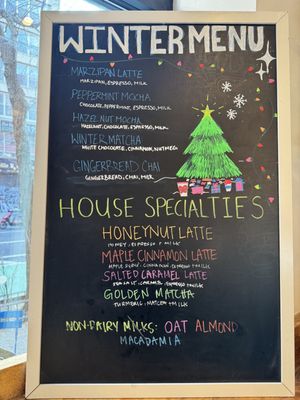 WINTER MENU
MARZIPAN LATTE
MARZIPAN, ESPRESSO, MILK
PEPPERMINT MOCHA
CHOCOLATE, PEPPERMINT, ESPRESSO, MILK
HAZELNUT MOCHA
HAZELNUT, CHOCOLATE, ESPRESSO, MILK
WINTER MATCHA
WHITE CHOCOLATE, CINNAMON, NUTMEG
GINGERBREAD CHAI
GINGERBREAD, CHAI, MILK
HOUSE SPECIALTIES
HONEYNUT LATTE
HONEY, ESPRESSO + MILK
MAPLE CINNAMON LATTE
MAPLE SYRUP, CINNAMON, ESPRESSO + MILK
SALTED CARAMEL LATTE
SEA SALT, CARAMEL, ESPRESSO + MILK
GOLDEN MATCHA
TURMERIC, MATCHA + MILK
NON-DAIRY MILKS: OAT ALMOND
MACADAMIA